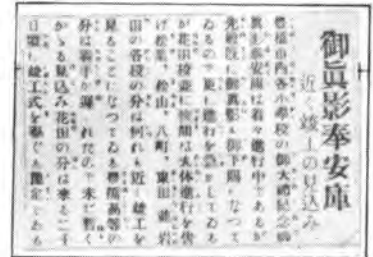 御眞影奉安庫
近く竣工の見込み
豊橋市内各小學校の御大禮紀念御
眞影奉安庫は着々進行中であるが
先般既に御眞影も御下賜になつて
ゐるので更に進行を急がしてゐる
が花田校並に狹間は大体進行を告
げ松葉、松山、八町、東田
田の各校の分は何れも近く竣工を
見ることになつてゐるも豊橋高等の
分は着手が遲れたので未だ暫く
かゝる見込み花田の分は來る二十
日頃に竣工式を擧ぐる豫定である